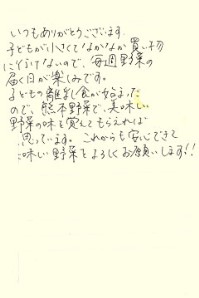 いつもありがとうございます。
子どもが小さくてなかなか買い物
に行けないので、毎週野菜の
届く日が楽しみです。
子どもの離乳食が始まった
ので、熊本野菜で、美味しい
野菜の味を覚えてもらえれば
思っています。これからも安心できて
味い野菜をよろしくお願いします!!